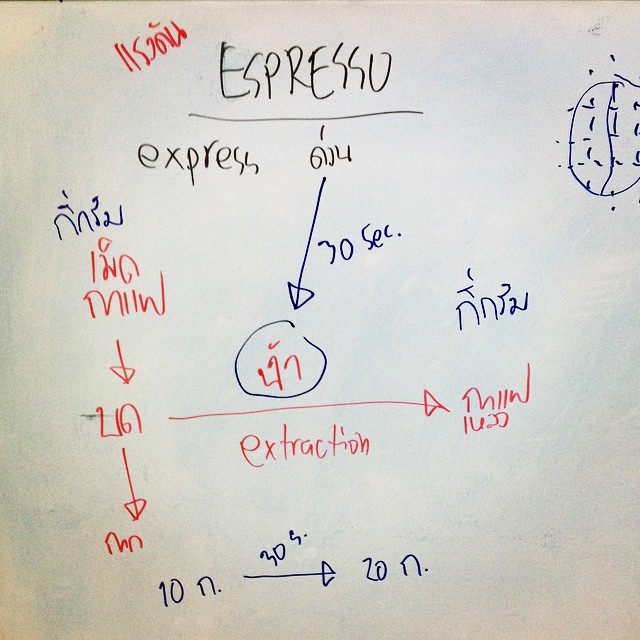 แรงดัน
ESPRESSO
express ด่วน
30 sec.
กี่กรัม
เม็ด
กาแฟ
น้ำ
กี่กรัม
บด
extraction
กาแฟ
เหลว
กาก
30 ว.
10 ก. 20 ก.